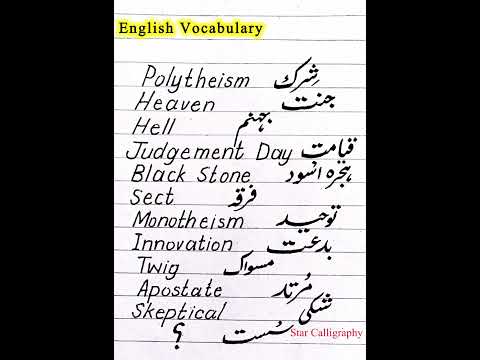 English Vocabulary
Polytheism شِرک
Heaven جنت
Hell جہنم
Judgement Day قیامت
Black Stone ہجرہ اسود
Sect فرقہ
Monotheism توحید
Innovation بدعت
Twig مسواک
Apostate مُرتد
Skeptical شکی
؟ سُست
Star Calligraphy